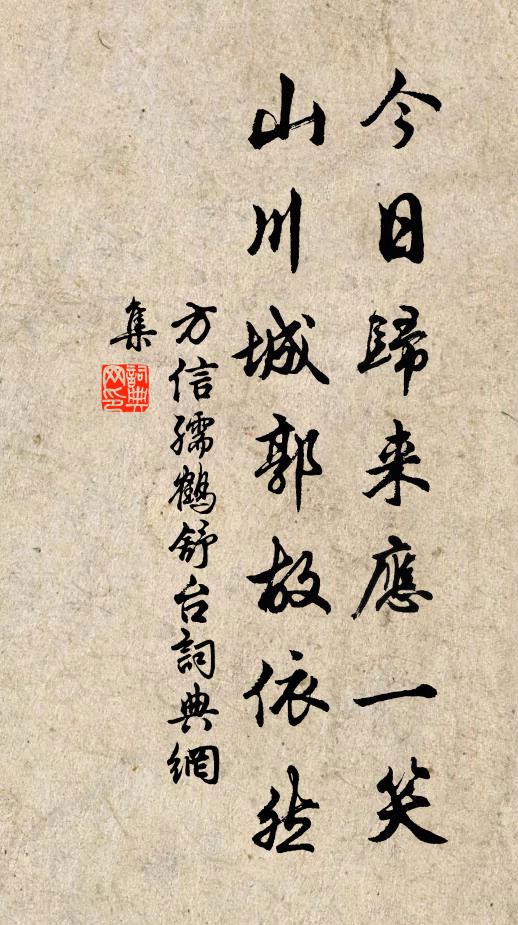 今日歸来應一笑
山川城郭故依然
方信孺鶴舒台詞典網
集
詞典网印